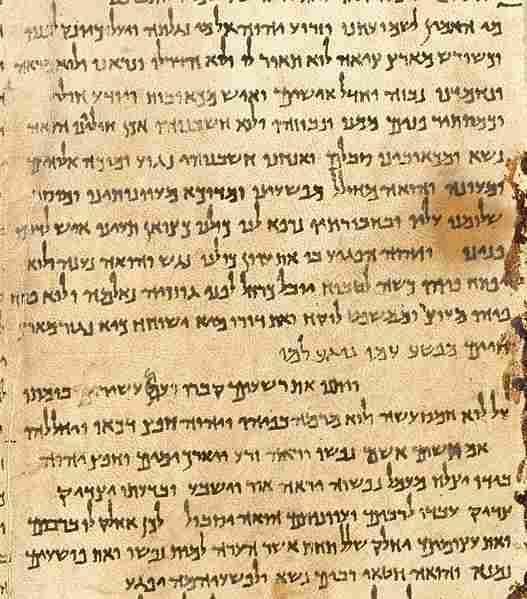 מי האמין לשמועתנו וזרוע יהוה אל מי נגלתה ויעל כיונק לפניו
וכשורש מארץ ציה לוא תואר לו ולוא הדר לו ונראנו ולוא מראה
ונחמדנו נבזה וחדל אישים ואיש מכאובות וידוע חולי
וכמסתיר פנים ממנו ונבוזהו ולוא חשבנוהו אכן חוליינו הואה
נשא ומכאובינו סבלם ואנחנו חשבנוהו נגוע ומוכה אלוהים
ומעונה והואה מחולל מפשעינו ומדוכא מעוונותינו ומוסר
שלומנו עליו ובחבורתיו נרפא לנו כולנו כצואן תעינו איש לדרכו
פנינו ויהוה הפגיע בו את עוון כולנו נגש והואה נענה ולוא
יפתח פיהו כשה לטבוח יובל כרחל לפני גוזזיה נאלמה ולוא פתח
פיהו מעוצר וממשפט לוקח ואת דורו מיא ישוחח כיא נגזר מארץ
חיים מפשע עמו נוגע למו
ויתנו את רשעים קברו ועם עשיר בומתו
על לוא חמס עשה ולוא מרמה בפיהו ויהוה חפץ דכאו ויחללהו
אם תשים אשם נפשו יראה זרע ויארך ימים וחפץ יהוה
בידו יצלח מעמל נפשוה יראה אור וישבע ובדעתו יצדיק
צדיק עבדו לרבים ועוונותם הואה יסבול לכן אחלק לו ברבים
ואת עצומים יחלק שלל תחת אשר הערה למות נפשו ואת פושעים
נמנה והואה חטאי רבים נשא ולפשעיהמה יפגע